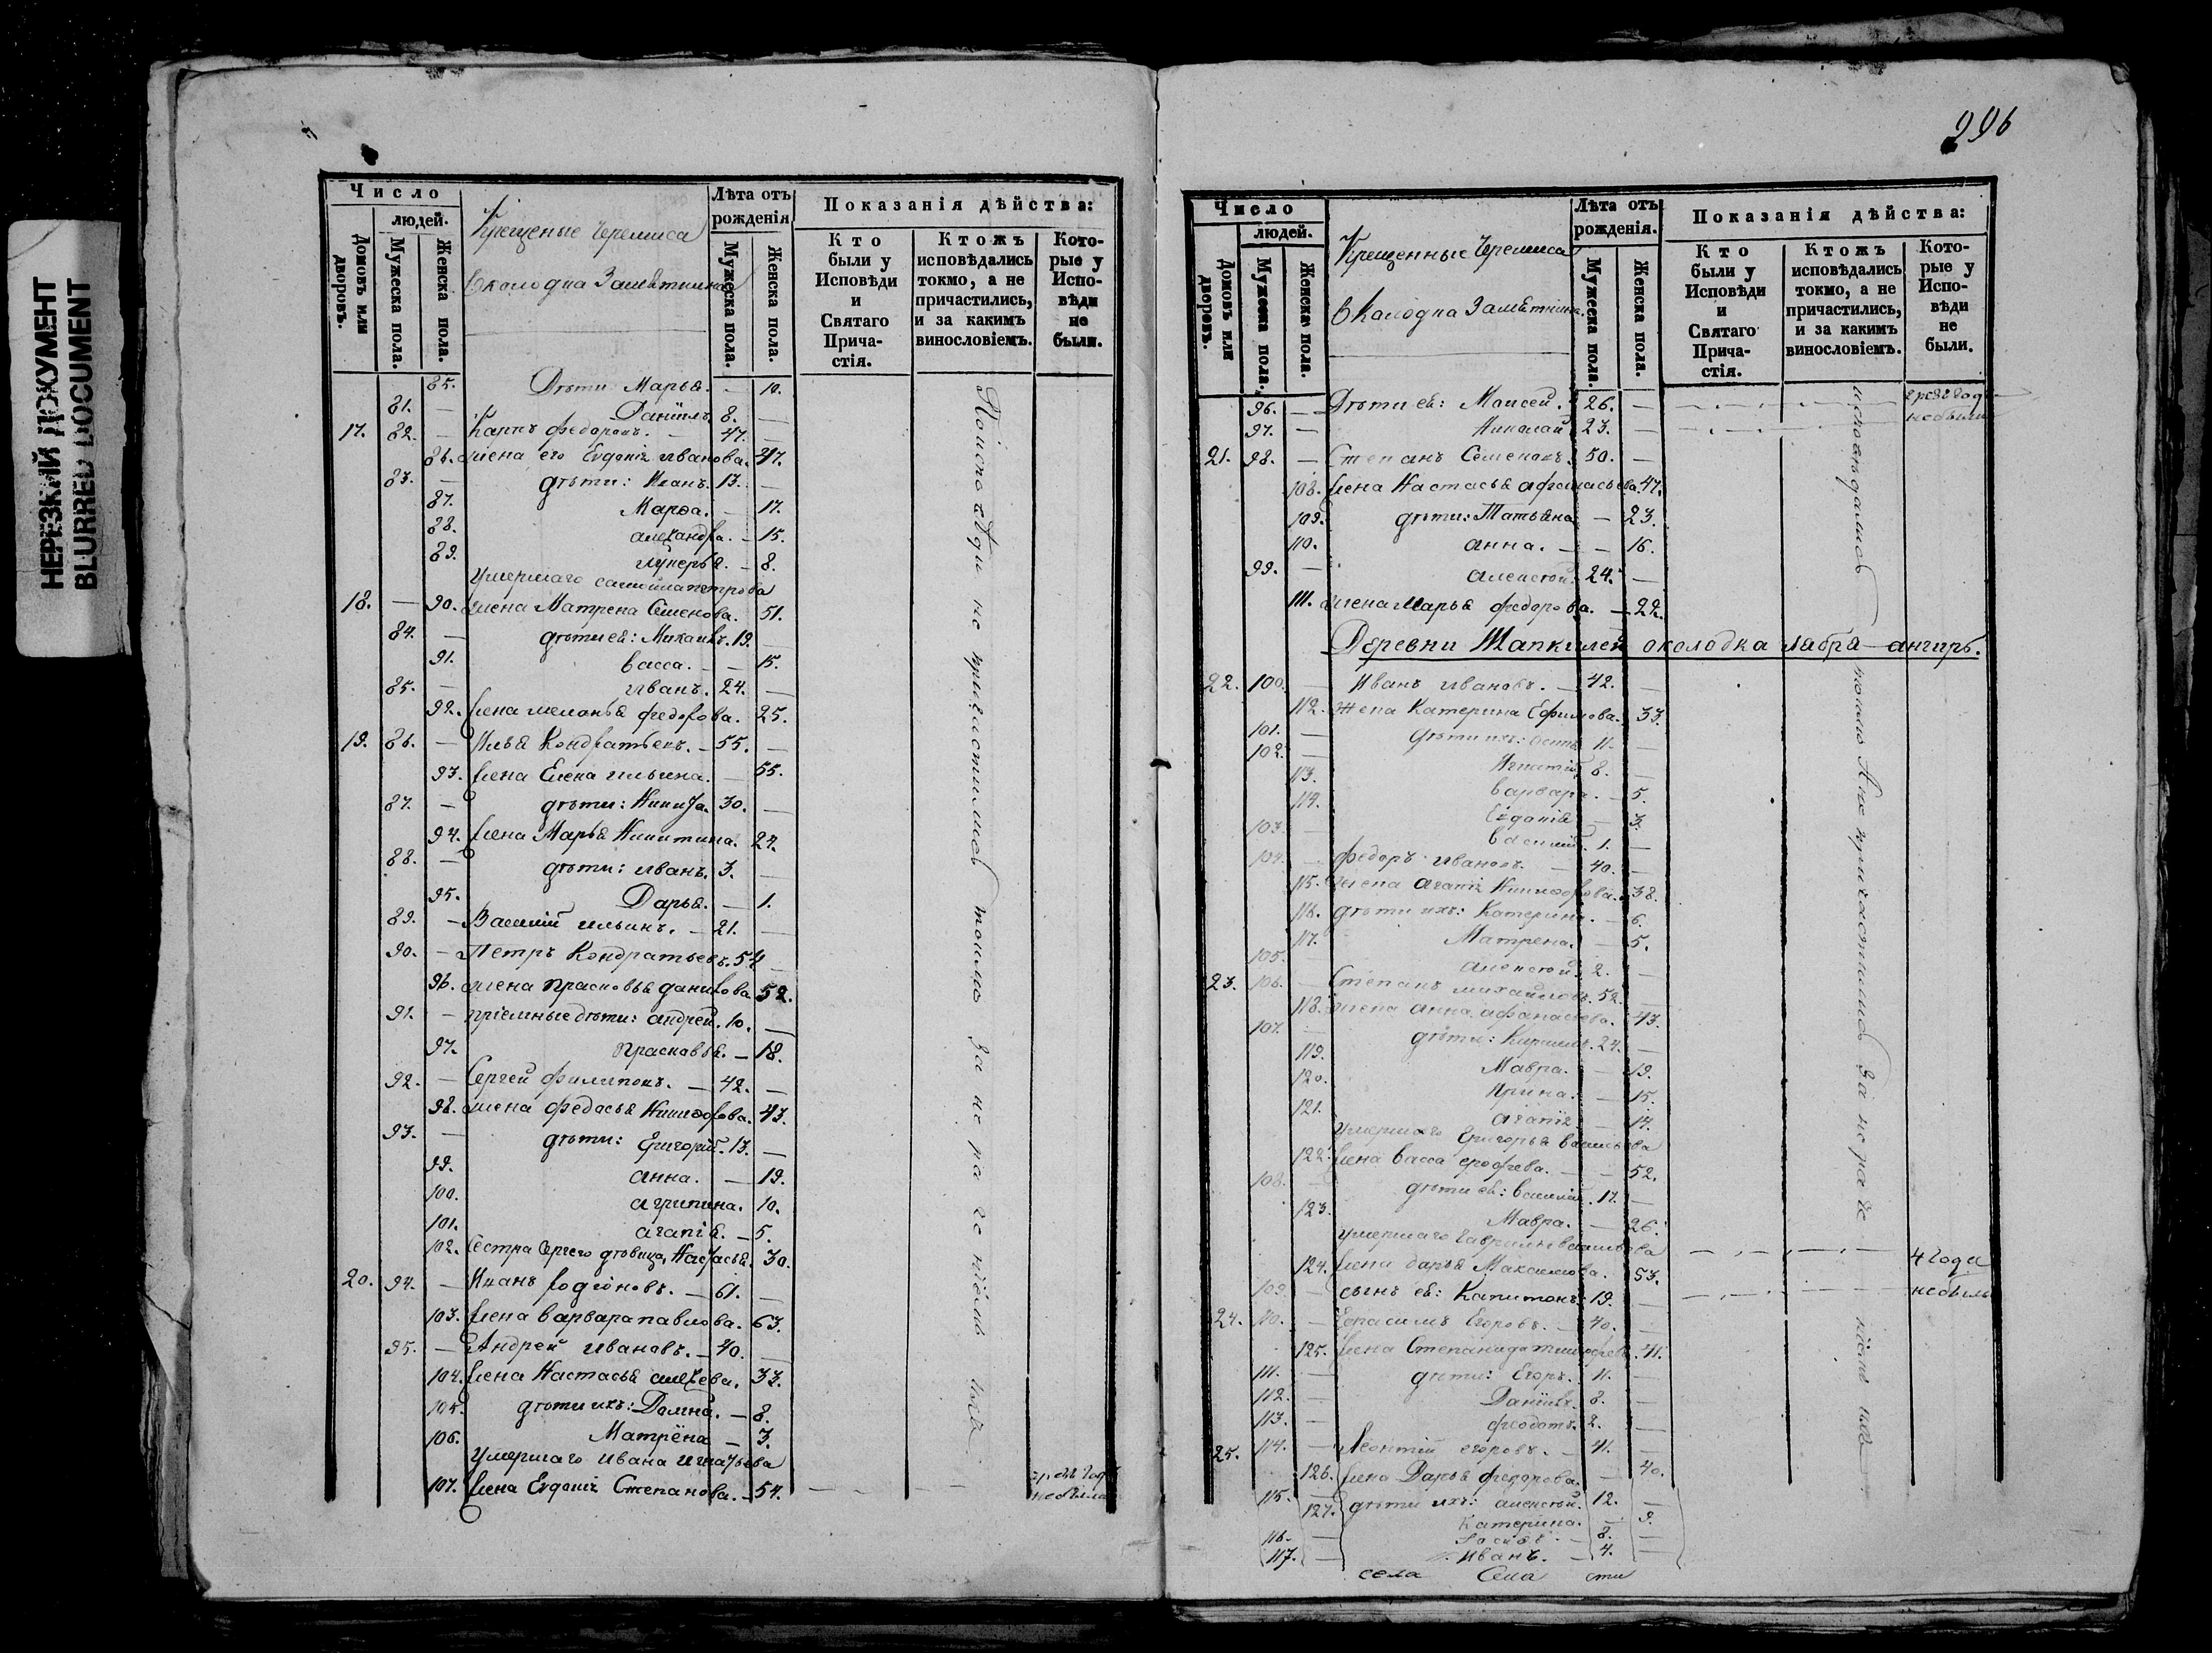 НЕРЕЗКИЙ ДОКУМЕНТ
BLURRED DOCUMENT
Число
людей.
Домовъ или дворовъ.
Мужеска пола.
Женска пола.
Крещеные Черемиса
Околодка
Лѣта отъ рожденія
Мужеска пола.
Женска пола.
Показанія дѣйства:
Кто были у Исповѣди и Святаго Причастія.
Ктожъ исповѣдались токмо, а не причастились, и за какимъ винословіемъ.
Которые у Исповѣди не были.
85. Дѣти Марья. — 10.
81. — Данiилъ 8. —
17. 82. — Карпъ Федоровъ. — 47. —
86. жена его Евдокiя Иванова. 47.
83. — дѣти: Иванъ. 13. —
87. Марѳа. — 17.
88. александра. — 15.
89. — 8.
Умершаго самойла петрова
18. — 90. жена Матрена Семенова. 51.
84. — дѣти ея: Михаилъ. 19. —
91. васса. — 15.
85. — иванъ. 24. —
92. жена меланья федорова. 25.
19. 86. — Илья Кондратьевъ. — 55. —
93. жена Елена ильина. — 55.
87. — дѣти: Никита. 30. —
94. жена Марья Никитина. 24.
88. — дѣти: иванъ. 3. —
95. Дарья. — 1.
89. — Василий ильинъ. — 21. —
90. — Петръ Кондратьевъ. 54 —
96. жена прасковья данилова 52.
91. — прiемные дѣти: андрей. 10. —
97. прасковья. — 18.
92. — Сергей филиповъ. — 42. —
98. жена федосья Никифорова. 43.
93. — дѣти: Григорiй. 13. —
99. анна. — 19.
100. агрипина. 10.
101. агапiя. — 5.
102. Сестра Сергего дѣвица, Настасья. 30.
20. 94. — Иванъ родiоновъ. — 61. —
103. жена варвара павлова. 63.
95. — Андрей ивановъ. — 40. —
104. жена Настасья алеѯева. 33.
105. дѣти ихъ: Домна. — 8.
106. Матрёна — 3.
Умершаго ивана игнатьева
107. жена Евдокiя Степанова. — 54.
не была
токмо не причастились за не ра че нiемъ ихъ
296
Число
людей.
Домовъ или дворовъ.
Мужеска пола.
Женска пола.
Крещенные Черемиса
Околодка
Лѣта отъ рожденія.
Мужеска пола.
Женска пола.
Показанія дѣйства:
Кто были у Исповѣди и Святаго Причастія.
Ктожъ исповѣдались токмо, а не причастились, и за какимъ винословіемъ.
Которые у Исповѣди не были.
96. — Дѣти ея: Моисей. 26. —
97. — Николай 23. —
небыли
21. 98. — Степанъ Семеновъ. 50. —
108. жена Настасья афонасьева. 47.
109. дѣти: Татьяна — 23.
110. анна. — — 16.
99. — алексѣй. 24. —
111. жена Марья федорова. — 22.
Деревни Шапкилей околодка лабра-ангиръ.
22. 100. — Иванъ ивановъ. — 42. —
112. жена Катерина Ефимова. 33.
101. — дѣти ихъ: 11. —
102. — Игнатiй 8. —
113. варвара. — 5.
114. Евдокiя — 3.
103. Василiй. 1. —
104. — Федоръ ивановъ. — 40. —
115. жена агапiя Никифорова. 38.
116. дѣти ихъ: Катерина. — 6.
117. Матрена. — 5.
105. алексѣй. 2. —
23. 106. — Степанъ михайловъ. 52. —
118. жена анна афанасьева. 43.
107. — дѣти: Кирилъ. 24. —
119. Мавра. — 19.
120. Ирина. — 15.
121. агапiя. — 14.
Умершаго Григорья васильева
122. жена васса ерофеева. — 52.
108. — дѣти ея: василiй. 17. —
123. Мавра. — 26.
Умершаго гаврилы васильева
124. жена дарья Максимова. 53.
4 года
109. — сынъ ея: Капитонъ. 19. —
небыли
24. 110. — Герасимъ Егоровъ. — 40. —
125. жена Степанида тимофеева. 41.
111. — дѣти: Егоръ. 11. —
112. — Данiилъ. 8. —
113. — феодотъ. 2. —
25. 114. — Леонтiй егоровъ. — 41. —
126. жена Дарья федорова. — 40.
115. — дѣти ихъ: алексѣй. 12. —
127. Катерина. — 9.
116. — 8. —
117. — Иванъ. — 4. —
исповѣдались токмо а не причастились за не ра че нiемъ ихъ
села